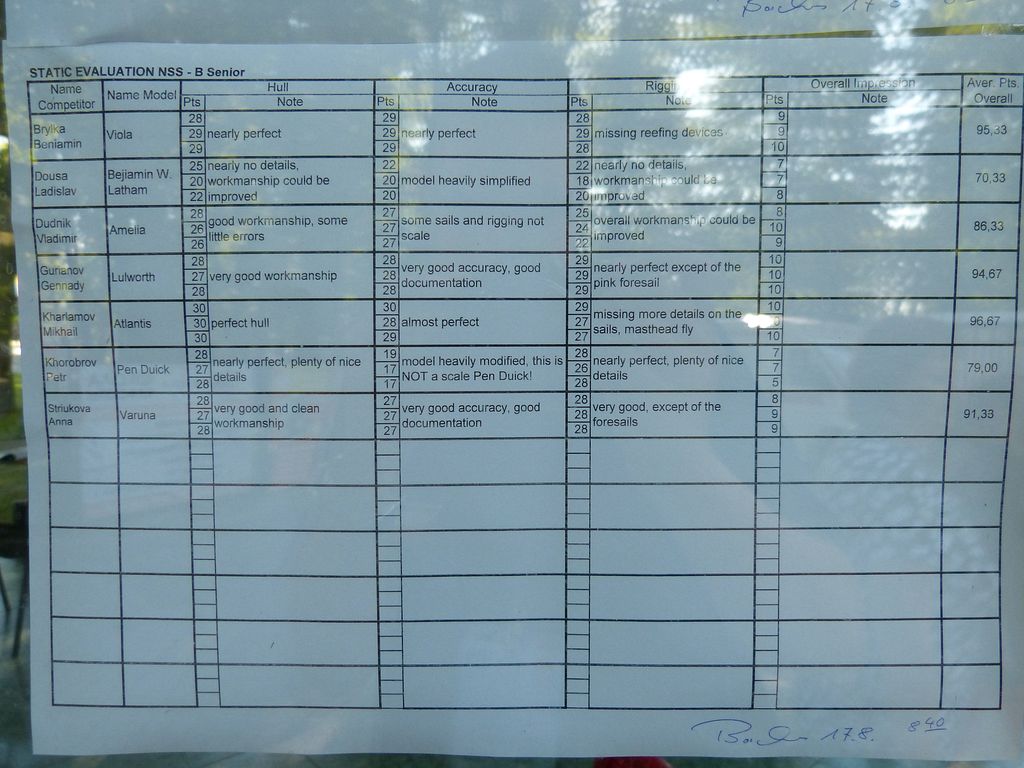 17.
STATIC EVALUATION NSS - B Senior
Name Competitor Name Model Hull Accuracy Overall Impression Aver. Pts. Overall
Pts Note Pts Note Pts Note Pts Note
Brylka Beniamin Viola 28 29 29 nearly perfect 29 29 29 nearly perfect 28 29 28 missing reefing devices 9 9 10 95,33
Dousa Ladislav Bejiamin W. Latham 25 20 22 nearly no details, workmanship could be improved 22 20 20 model heavily simplified 22 18 20 nearly no details, workmanship could be improved 7 7 8 70,33
Dudnik Vladimir Amelia 28 26 26 good workmanship, some little errors 27 27 27 some sails and rigging not scale 25 24 22 overall workmanship could be improved 8 10 9 86,33
Gurianov Gennady Lulworth 28 27 28 very good workmanship 28 28 28 very good accuracy, good documentation 29 29 29 nearly perfect except of the pink foresail 10 10 10 94,67
Kharlamov Mikhail Atlantis 30 30 30 perfect hull 30 28 29 almost perfect 29 27 27 missing more details on the sails, masthead fly 10 10 96,67
Khorobrov Petr Pen Duick 28 27 28 nearly perfect, plenty of nice details 19 17 17 model heavily modified, this is NOT a scale Pen Duick! 28 26 28 nearly perfect, plenty of nice details 7 7 5 79,00
Striukova Anna Varuna 28 27 28 very good and clean workmanship 27 27 27 very good accuracy, good documentation 28 28 28 very good, except of the foresails 8 9 9 91,33
17.8. 8 40